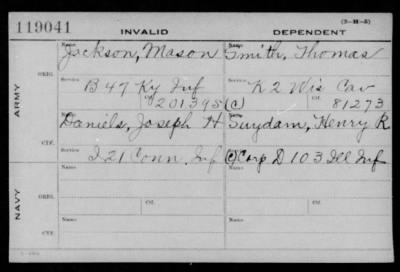 119041 INVALID DEPENDENT (3-H-5)
ARMY
ORIG.
Name Jackson, Mason
Name Smith, Thomas
Service B 47 Ky Inf
Service K 2 Wis Cav
Ctf. 201395 (C)
Ctf. 81273
CTF.
Name Daniels, Joseph H
Name Suydam, Henry R
Service I 21 Conn. Inf
Service (C) Corp D 103 Ill Inf
NAVY
ORIG.
Name
Name
Ctf.
Ctf.
CTF.
Name
Name